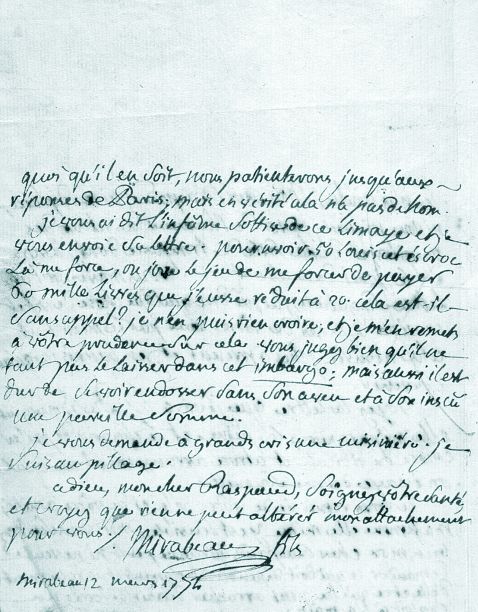 quoi qu'il en soit, nous patienterons jusqu'aux
réponses de Paris; mais en vérité cela n'a pas de nom.
je vous ai dit l'infâme sottise de ce Limaye et je
vous envoie sa lettre. pour avoir 50 Louis cet escroc
Là me force, ou joue le jeu de me forcer de payer
60 mille Livres que j'eusse réduit à 20 cela est-il
sans appel? je n'en puis rien croire, et je m'en remets
à vôtre prudence sur cela vous jugez bien qu'il ne
faut pas le laisser dans cet imbargo; mais aussi il est
dur de se voir endosser sans son aveu et à son insçu
une pareille somme.
je vous demande à grands cris une cuisinière. je
suis au pillage.
adieu, mon cher Raspaud, soignez vôtre santé
et croyez que rien ne peut altérer mon attachement
pour vous. Mirabeau fils
Mirabeau 12 mars 17